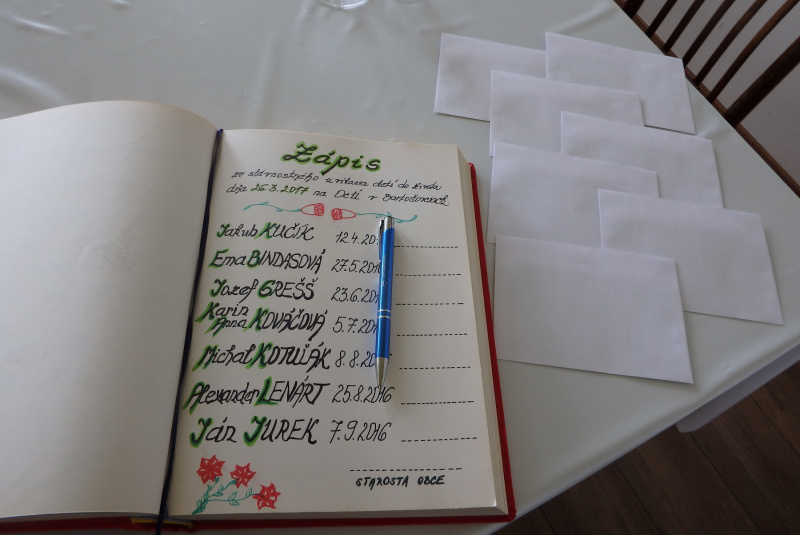 Zápis
zo slávnostného uvítania detí do života
dňa 26.3.2017 na OcÚ v Bartošovciach
Jakub KUČÍK 12.4.20
Ema BINDASOVÁ 27.5.2016
Jozef GREŠŠ 23.6.20
Karin
Anna KOVÁČOVÁ 5.7.20
Michal KOTUĽÁK 8.8.20
Alexander LENÁRT 25.8.2016
Ján JUREK 7.9.2016
STAROSTA OBCE